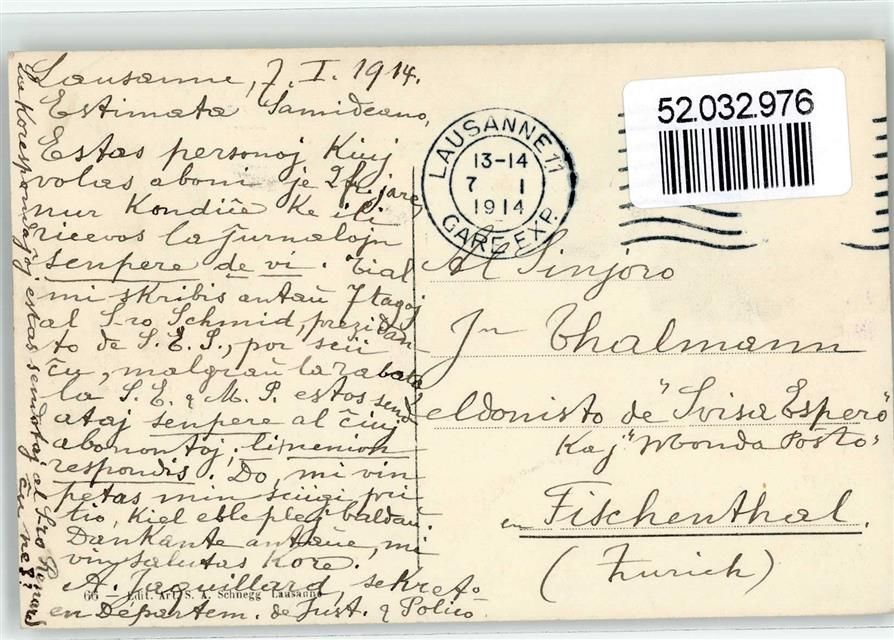 Lausanne, 7. I. 1914.
Estimata Samideano,
Estas personoj kiuj
volas aboni je 2 fr. jare,
nur kondiĉe ke ili
ricevos la ĵurnalojn
senpere de vi. Tial
mi skribis antaŭ 7 tagoj
al S-ro Schmid, prezidan-
to de S. E. S., por scii
ĉu, malgraŭ la rabato
la S. E. & M. P. estos send-
ataj senpere al ĉiuj
abonontoj; li ne nion
respondis. Do, mi vin
petas min sciigi pri
tio, kiel eble plej baldaŭ.
Dankante antaŭe, mi
vin salutas kore.
A. Jaquillard, sekreto.
en Départem. de Just. & Polico
66 — Edit. Art. S. A. Schnegg Lausanne
La korespondaĵoj estas sendotaj al S-ro
ĉu ne?
LAUSANNE 11
13-14
7 I
1914
GARE EXP.
52.032.976
Al Sinjoro
Jn Thalmann
eldonisto de "Svisa Espero"
kaj "Monda Poŝto"
en Fischenthal.
(Zurich)